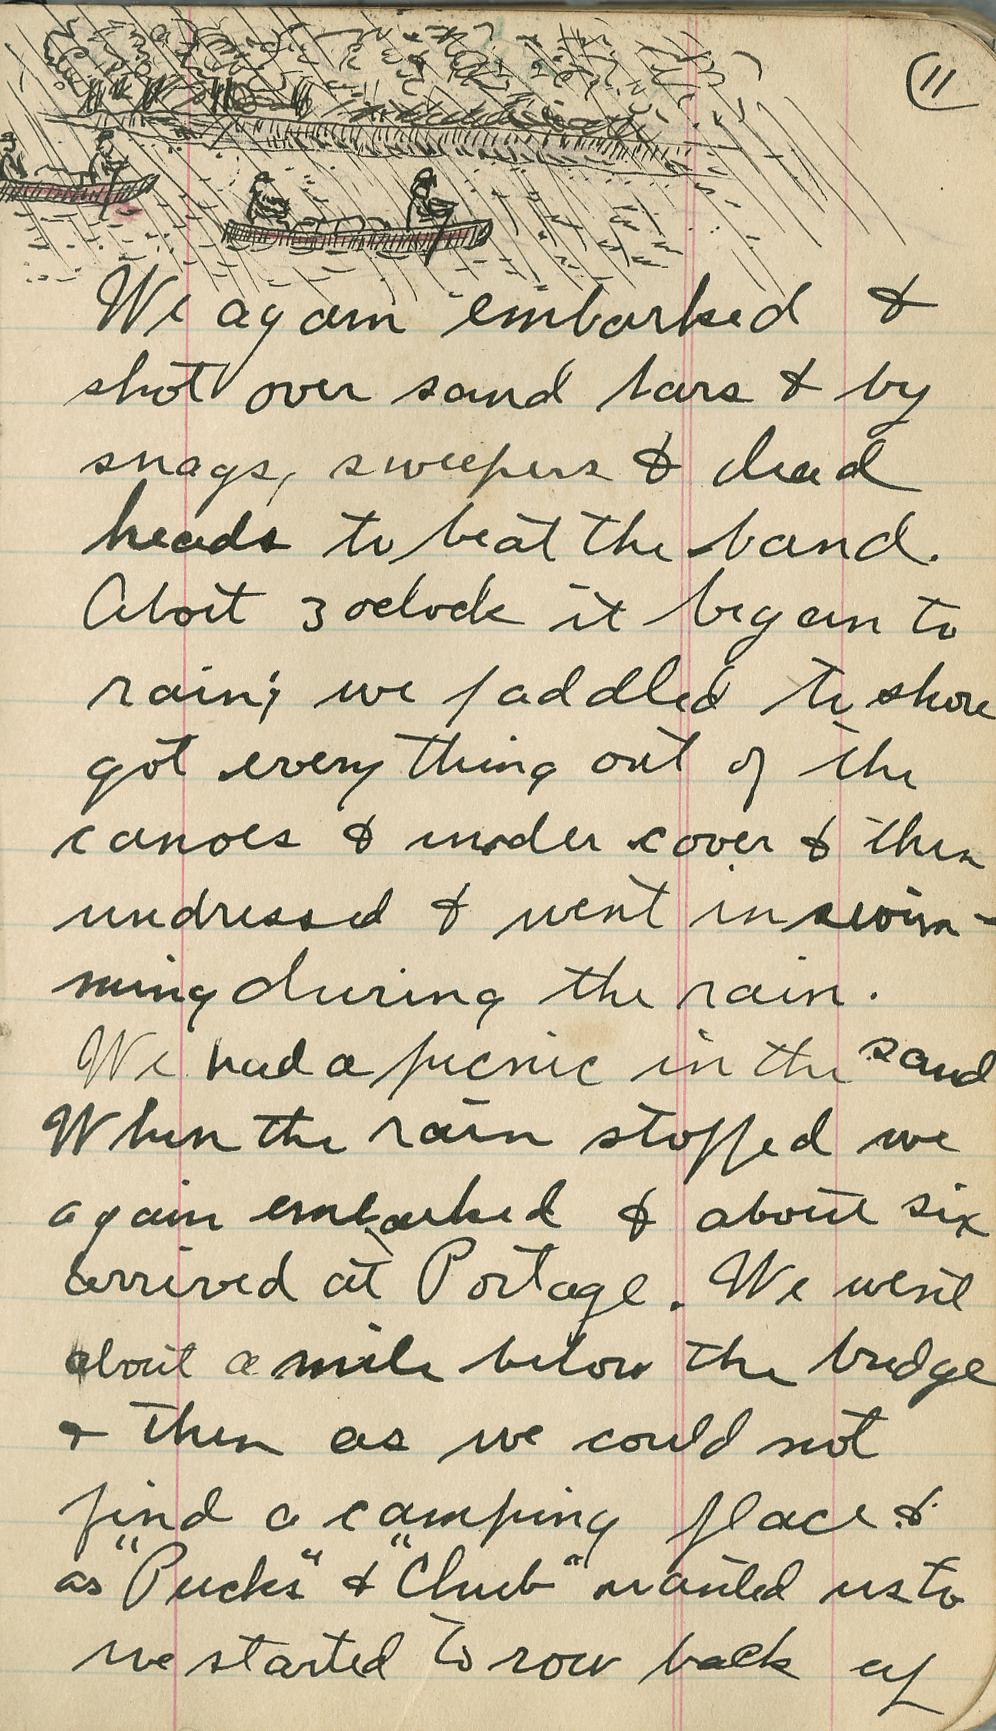 11
We again embarked &
shot over sand bars & by
snags, sweepers & dead
heads to beat the band.
About 3 oclock it began to
rain; we paddled to shore
got everything out of the
canoes & under cover & then
undressed & went in swim-
ming during the rain.
We had a picnic in the sand
When the rain stopped we
again embarked & about six
arrived at Portage. We went
about a mile below the bridge
& then as we could not
find a camping place &
as "Pucks" & "Chub" wanted us to
we started to row back up